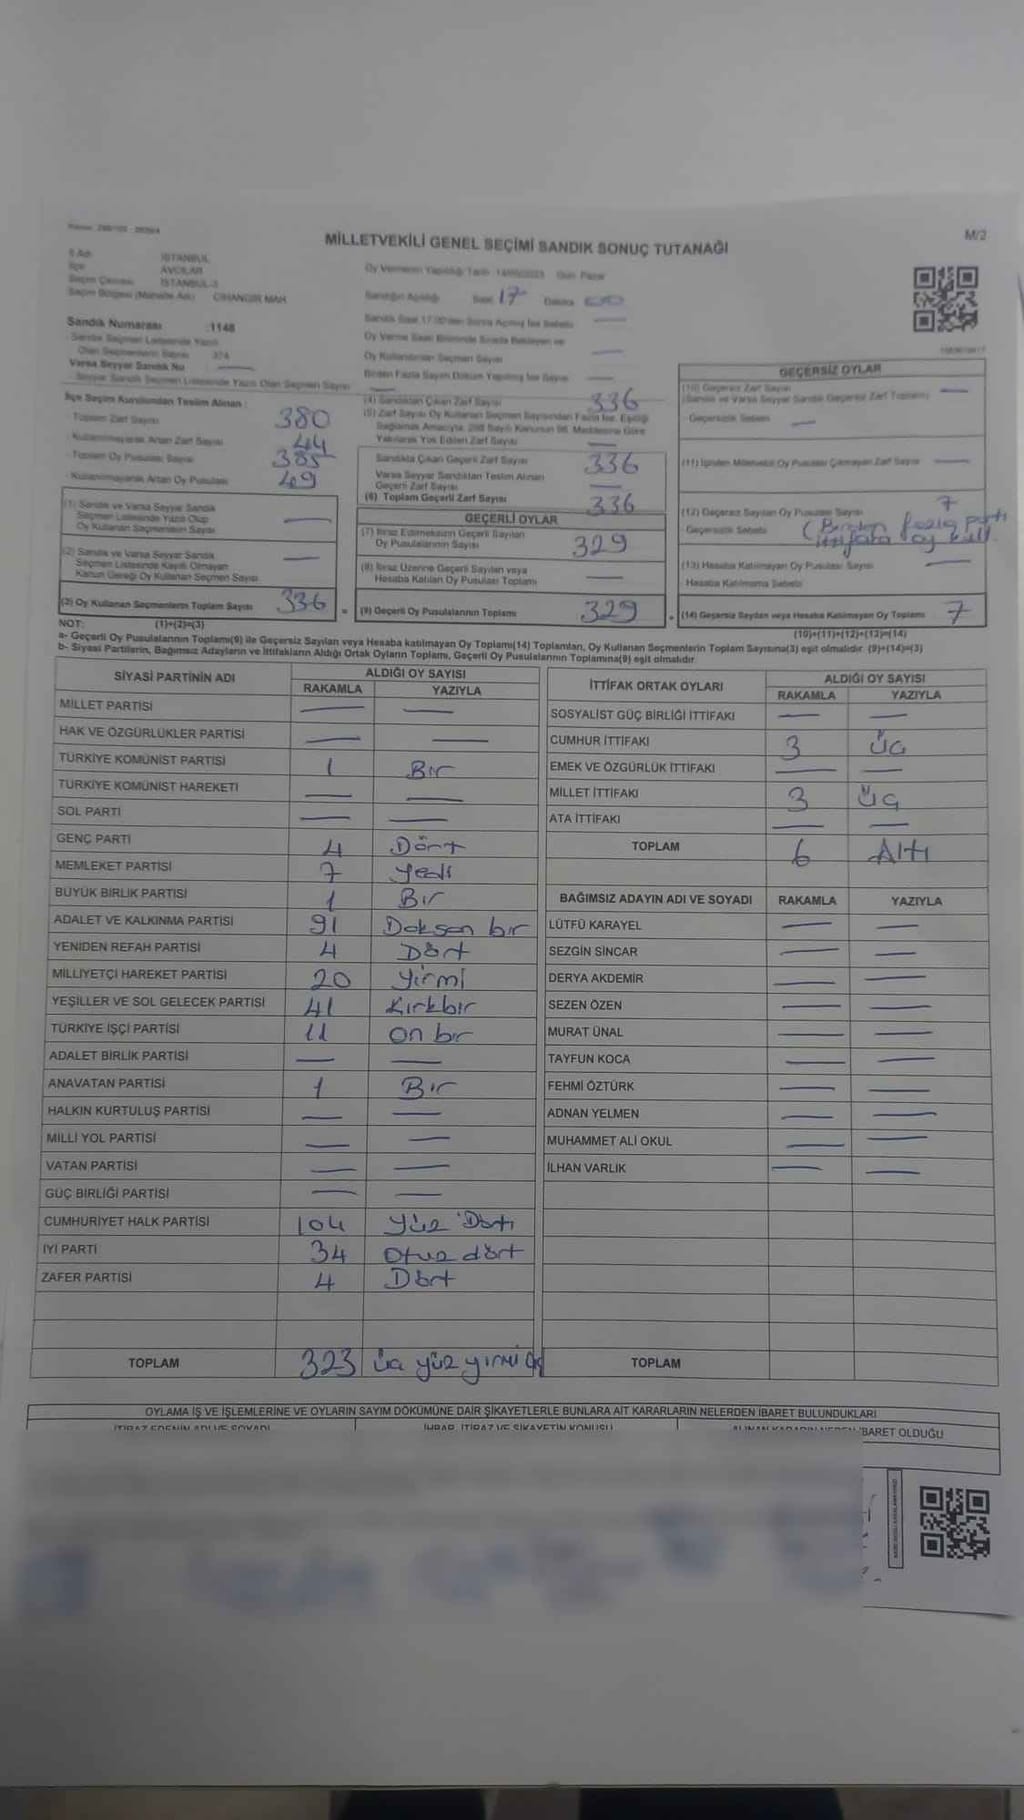 MİLLETVEKİLİ GENEL SEÇİMİ SANDIK SONUÇ TUTANAĞI
M/2
İl Adı İSTANBUL
İlçe AVCILAR
Seçim Çevresi İSTANBUL-3
Seçim Bölgesi (Mahalle Adı) CİHANGİR MAH
Oy Vermenin Yapıldığı Tarih 14/05/2023 Gün Pazar
Sandığın Açıldığı Saat 17 Dakika 00
Sandık Numarası :1148
Sandık Seçmen Listesinde Yazılı
Olan Seçmenlerin Sayısı 374
Varsa Seyyar Sandık No —
Seyyar Sandık Seçmen Listesinde Yazılı Olan Seçmen Sayısı —
Sandık Saat 17:00'den Sonra Açılmış İse Sebebi —
Oy Verme Saati Bitiminde Sırada Bekleyen ve
Oy Kullandırılan Seçmen Sayısı —
Birden Fazla Sayım Döküm Yapılmış İse Sayısı —
İlçe Seçim Kurulundan Teslim Alınan :
Toplam Zarf Sayısı 380
- Kullanılmayarak Artan Zarf Sayısı 44
- Toplam Oy Pusulası Sayısı 385
- Kullanılmayarak Artan Oy Pusulası 49
(1) Sandık ve Varsa Seyyar Sandık
Seçmen Listesinde Yazılı Olup
Oy Kullanan Seçmenlerin Sayısı —
(2) Sandık ve Varsa Seyyar Sandık
Seçmen Listesinde Kayıtlı Olmayan
Kanun Gereği Oy Kullanan Seçmen Sayısı —
(3) Oy Kullanan Seçmenlerin Toplam Sayısı 336
(1)+(2)=(3)
(4) Sandıktan Çıkan Zarf Sayısı 336
(5) Zarf Sayısı Oy Kullanan Seçmen Sayısından Fazla İse, Eşitliği
Sağlamak Amacıyla, 298 Sayılı Kanunun 98. Maddesine Göre
Yakılarak Yok Edilen Zarf Sayısı —
Sandıkta Çıkan Geçerli Zarf Sayısı 336
Varsa Seyyar Sandıktan Teslim Alınan
Geçerli Zarf Sayısı —
(6) Toplam Geçerli Zarf Sayısı 336
GEÇERLİ OYLAR
(7) İtiraz Edilmeksizin Geçerli Sayılan
Oy Pusulalarının Sayısı 329
(8) İtiraz Üzerine Geçerli Sayılan veya
Hesaba Katılan Oy Pusulası Toplamı —
= (9) Geçerli Oy Pusulalarının Toplamı 329
GEÇERSİZ OYLAR
(10) Geçersiz Zarf Sayısı
(Sandık ve Varsa Seyyar Sandık Geçersiz Zarf Toplamı) —
Geçersizlik Sebebi —
(11) İçinden Milletvekili Oy Pusulası Çıkmayan Zarf Sayısı —
(12) Geçersiz Sayılan Oy Pusulası Sayısı 7
Geçersizlik Sebebi (Birden fazla parti
ittifaka oy kull.
(13) Hesaba Katılmayan Oy Pusulası Sayısı —
Hesaba Katılmama Sebebi
+ (14) Geçersiz Sayılan veya Hesaba Katılmayan Oy Toplamı 7
(10)+(11)+(12)+(13)=(14)
NOT:
a- Geçerli Oy Pusulalarının Toplamı(9) ile Geçersiz Sayılan veya Hesaba katılmayan Oy Toplamı(14) Toplamları, Oy Kullanan Seçmenlerin Toplam Sayısına(3) eşit olmalıdır. (9)+(14)=(3)
b- Siyasi Partilerin, Bağımsız Adayların ve İttifakların Aldığı Ortak Oyların Toplamı, Geçerli Oy Pusulalarının Toplamına(9) eşit olmalıdır.
SİYASİ PARTİNİN ADI ALDIĞI OY SAYISI
RAKAMLA YAZIYLA
MİLLET PARTİSİ — —
HAK VE ÖZGÜRLÜKLER PARTİSİ — —
TÜRKİYE KOMÜNİST PARTİSİ 1 Bir
TÜRKİYE KOMÜNİST HAREKETİ — —
SOL PARTİ — —
GENÇ PARTİ 4 Dört
MEMLEKET PARTİSİ 7 Yedi
BÜYÜK BİRLİK PARTİSİ 1 Bir
ADALET VE KALKINMA PARTİSİ 91 Doksan bir
YENİDEN REFAH PARTİSİ 4 Dört
MİLLİYETÇİ HAREKET PARTİSİ 20 Yirmi
YEŞİLLER VE SOL GELECEK PARTİSİ 41 Kırkbir
TÜRKİYE İŞÇİ PARTİSİ 11 on bir
ADALET BİRLİK PARTİSİ — —
ANAVATAN PARTİSİ 1 Bir
HALKIN KURTULUŞ PARTİSİ — —
MİLLİ YOL PARTİSİ — —
VATAN PARTİSİ — —
GÜÇ BİRLİĞİ PARTİSİ — —
CUMHURİYET HALK PARTİSİ 104 Yüz Dört
İYİ PARTİ 34 Otuz dört
ZAFER PARTİSİ 4 Dört
TOPLAM 323 üç yüz yirmi üç
İTTİFAK ORTAK OYLARI ALDIĞI OY SAYISI
RAKAMLA YAZIYLA
SOSYALİST GÜÇ BİRLİĞİ İTTİFAKI — —
CUMHUR İTTİFAKI 3 Üç
EMEK VE ÖZGÜRLÜK İTTİFAKI — —
MİLLET İTTİFAKI 3 Üç
ATA İTTİFAKI — —
TOPLAM 6 Altı
BAĞIMSIZ ADAYIN ADI VE SOYADI RAKAMLA YAZIYLA
LÜTFÜ KARAYEL — —
SEZGİN SİNCAR — —
DERYA AKDEMİR — —
SEZEN ÖZEN — —
MURAT ÜNAL — —
TAYFUN KOCA — —
FEHMİ ÖZTÜRK — —
ADNAN YELMEN — —
MUHAMMET ALİ OKUL — —
İLHAN VARLIK — —
TOPLAM
OYLAMA İŞ VE İŞLEMLERİNE VE OYLARIN SAYIM DÖKÜMÜNE DAİR ŞİKAYETLERLE BUNLARA AİT KARARLARIN NELERDEN İBARET BULUNDUKLARI
İTİRAZ EDENİN ADI VE SOYADI İHBAR, İTİRAZ VE ŞİKAYETİN KONUSU ALINAN KARARIN NEDEN İBARET OLDUĞU